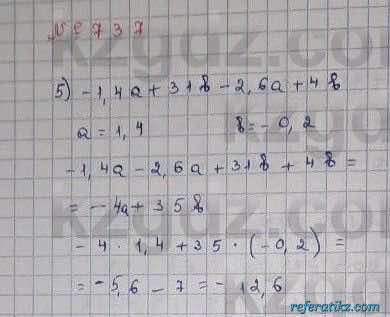 № 737
5) -1,4a + 31b - 2,6a + 4b
a = 1,4 b = -0,2
-1,4a - 2,6a + 31b + 4b =
= -4a + 35b
-4 · 1,4 + 35 · (-0,2) =
= -5,6 - 7 = -12,6
kzgdz.com
referatikz.com